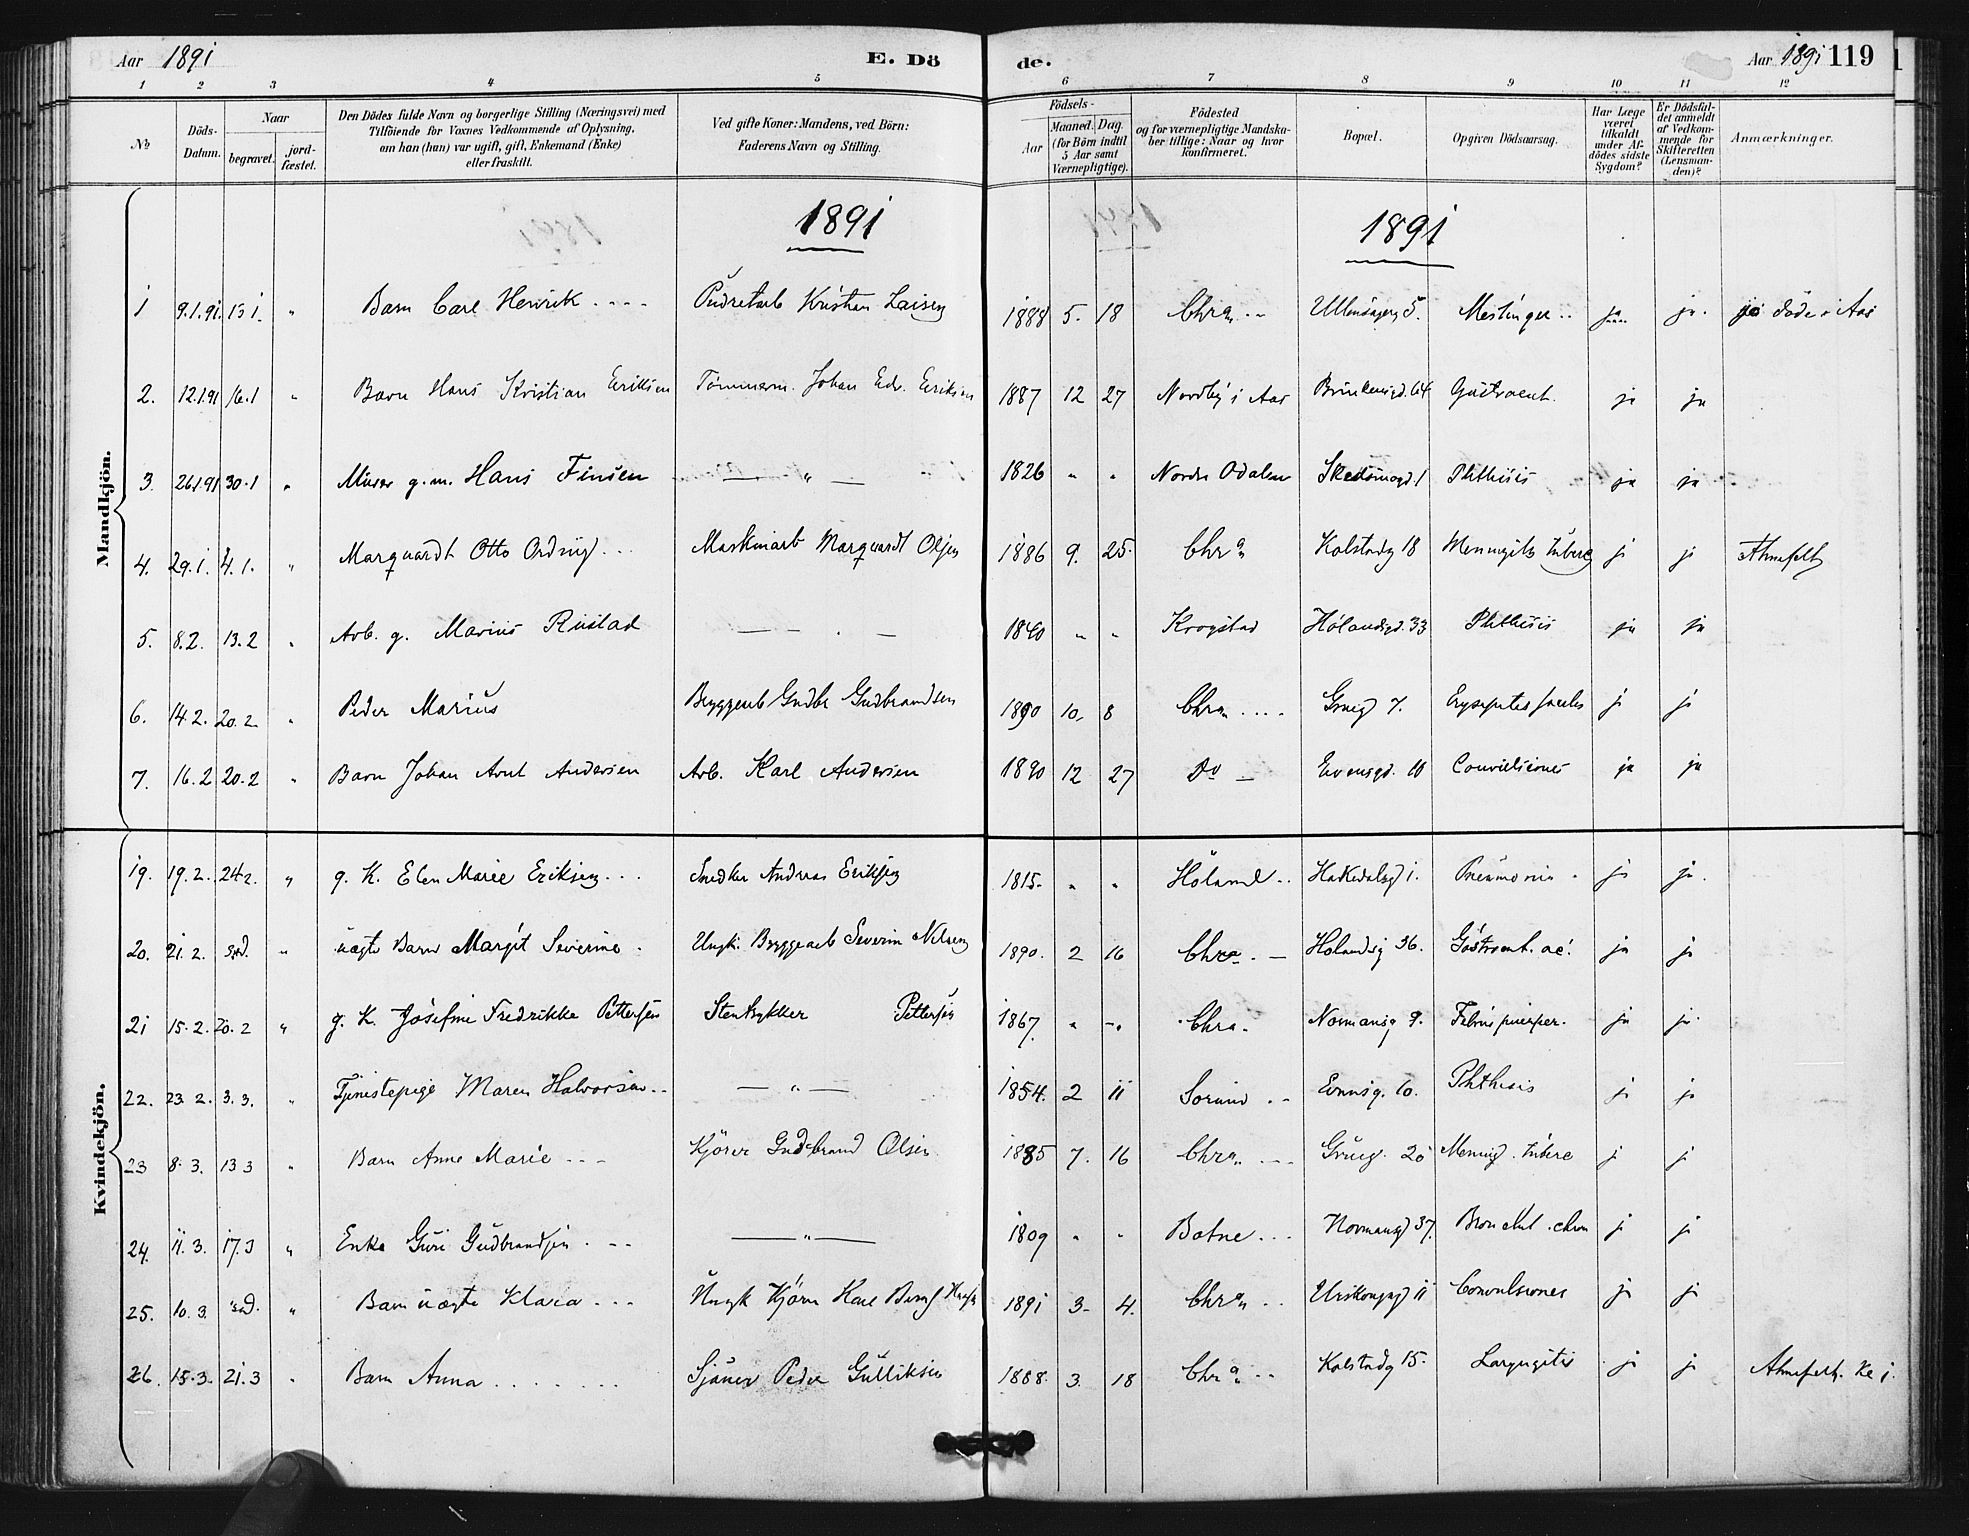 Aar 1891 E. Dö de. Aar 1891 119
1 2 3 4 5 6 7 8 9 10 11 12
№ Döds-Datum. Naar begravet. jord-fæstet. Den Dödes fulde Navn og borgerlige Stilling (Næringsvei) med Tilföiende for Voxnes Vedkommende af Oplysning, om han (hun) var ugift, gift, Enkemand (Enke) eller fraskilt. Ved gifte Koner: Mandens, ved Börn: Faderens Navn og Stilling. Födsels- Aar Maaned. Dag. (for Börn indtil 5 Aar samt Værnepligtige). Födested og for værnepligtige Mandska-ber tillige: Naar og hvor konfirmeret. Bopæl. Opgiven Dödsaarsag. Har Læge været tilkaldt under Af-dödes sidste Sygdom? Er Dödsfal-det anmeldt af Vedkom-mende for Skifteretten (Lensman-den)? Anmærkninger.
1891 1891
Mandkjön.
1 9.1.91. 15 1. " Barn Carl Henrik .... Kristian 1888 5. 18 Chra .. 5. ja ja. döde i Aas
2. 12.1.91 16.1 " Barn Hans Kristian Eriksen Tömmerm. Johan Edv. Eriksen 1887 12 27 Nordby i Aas 64 Gastroent. ja ja
3. 26.1.91 30.1 " Murer g.m. Hans Finsen — " — 1826 " " Nordre Odalen Skedsmogd. 1 Phthisis ja ja
4. 29.1. 4.1. " Marquardt Otto ... Maskinarb Marquardt Olsen 1886 9. 25. Chra Kolstadg 18 Meningitis tuberc j j
5. 8.2. 13.2 " Arb. g. Marius Rustad — — . — 1840 " " Krogstad Hölandsgd. 33 Phthisis ja ja
6. 14.2. 20.2 " Peder Marius Bryggearb Gudbr Gudbrandsen 1890 10. 8 Chra .... 7. j j
7. 16.2 20.2 " Barn Johan Andersen Arb. Karl Andersen 1890 12 27 Do — Evensgd. 10 Convulsiones ja ja
Kvindekjön.
19. 19.2. 24.2. " g. K. Elen Marie Eriksen ... Snedker Andreas Eriksen 1815. " " Höland .. Hakedalsgd 1. Pneumonia ja ja.
20. 21.2. " uægte Barn Margit Severine . Ungk. Bryggearb Severin Nilsen 1890. 2 16 Chra. — Holandsg 36. Gastroent. ac. ja j
21 15.2. 20.2 " g. K. Josefine Fredrikke Pettersen Pettersen 1867. " " Chra. Normansg 9. Febris puerper. ja ja
22. 23.2. 3.3. " Tjenestepige Maren Halvorsen .. — " — 1854. 2 11 .. Evensg. 10. Phthisis j j
23 8.3. 13 3 " Barn Anne Marie ... Kjörer Gudbrand Olsen 1885 7. 16 Chra ... Mening. tuberc j j
24. 11.3. 17.3 " Enke Guri Gudbrandsen ... — " — 1809 " " Botne ... Normansgd 37. Bronchit. chron j j
25. 10.3. " Barn uægte Klara ... Ungk Kjörer Karl 1891 3. 4. Chra .. Urskougsgd 11 Convulsiones j j
26. 15.3. 21.3 " Barn Anna ....... Peder Gulliksen 1888. 3. 18 Chra .. Kolstadg 15. Laryngitis j j